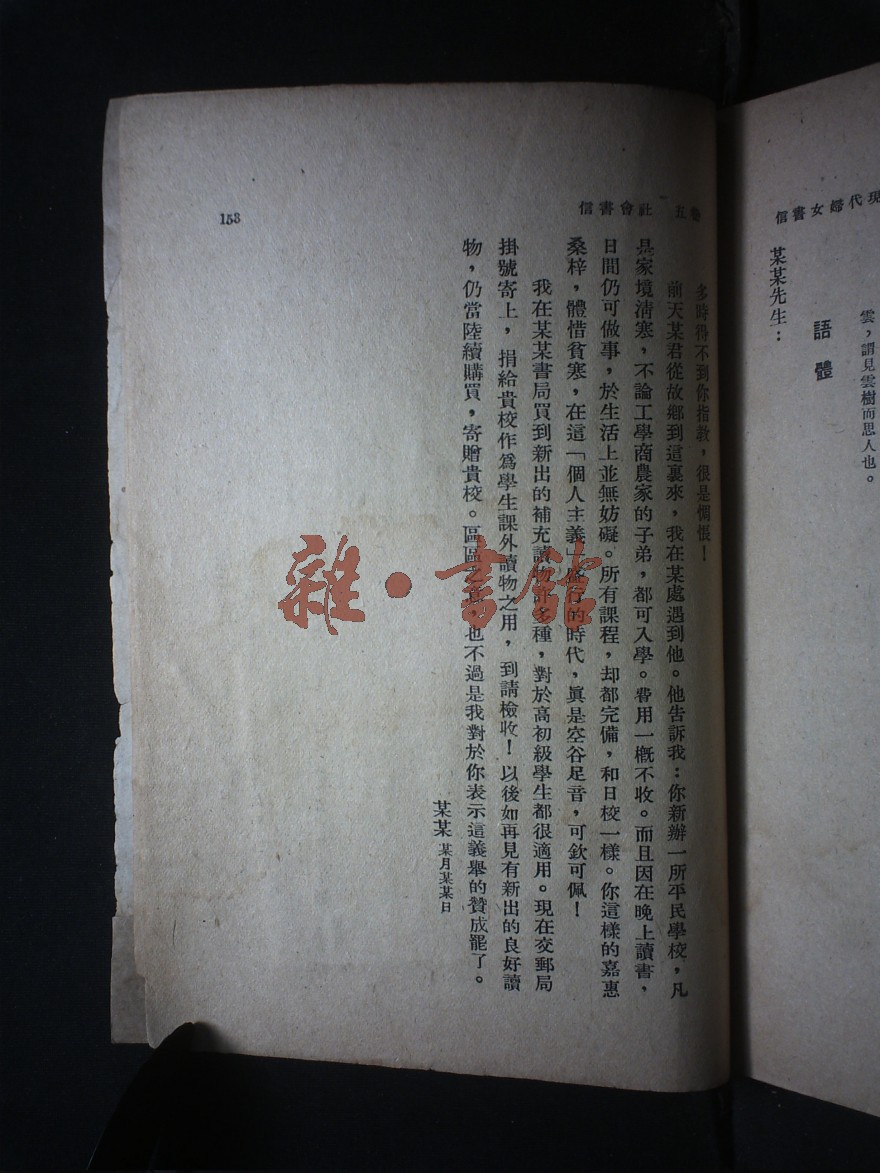 現代婦女書信
雲,謂見雲樹而思人也。
語體
某某先生:
五 社會書信
多時得不到你指教,很是惆悵!
前天某君從故鄉到這裏來,我在某處遇到他。他告訴我:你新辦一所平民學校,凡
是家境淸寒,不論工學商農家的子弟,都可入學。費用一槪不收。而且因在晚上讀書,
日間仍可做事,於生活上並無妨礙。所有課程,却都完備,和日校一樣。你這樣的嘉惠
桑梓,體惜貧寒,在這「個人主義」盛行的時代,眞是空谷足音,可欽可佩!
我在某某書局買到新出的補充讀物許多種,對於高初級學生都很適用。現在交郵局
掛號寄上,捐給貴校作爲學生課外讀物之用,到請檢收!以後如再見有新出的良好讀
物,仍當陸續購買,寄贈貴校。區區之意,也不過是我對於你表示這義舉的贊成罷了。
某某 某月某某日
153
雜·書館